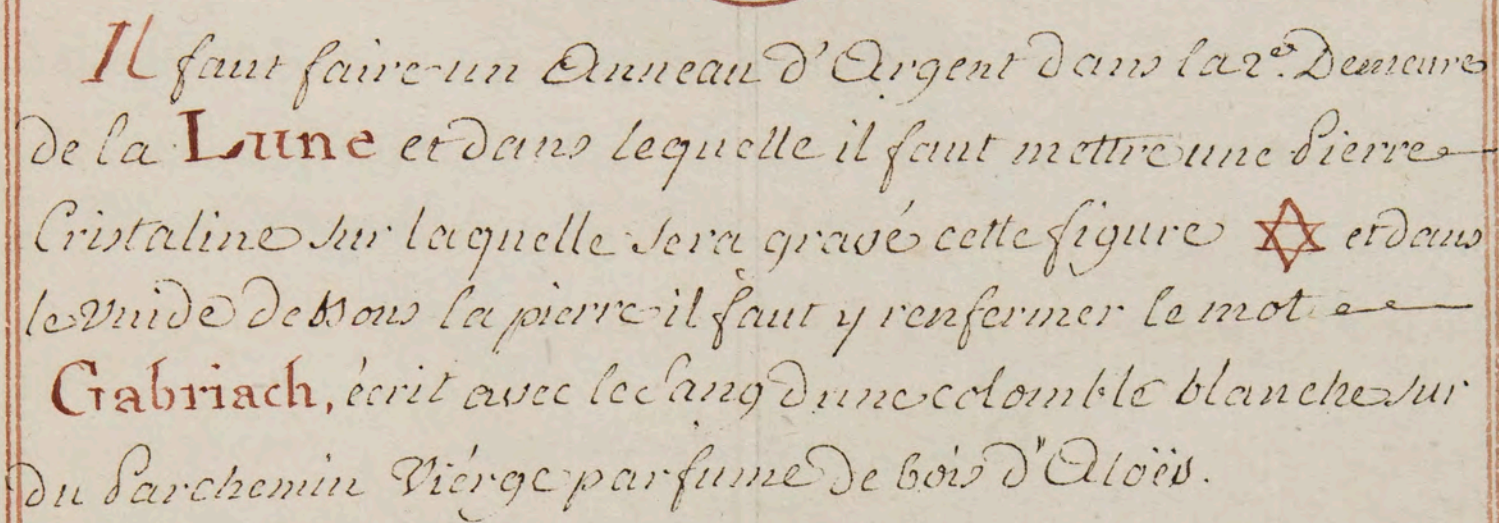 Il faut faire un Anneau d'Argent dans la 2e. Demeure
de la Lune et dans lequelle il faut mettre une Pierre
Cristaline sur laquelle sera gravé cette figure ✡ et dans
le vuide dessous la pierre il faut y renfermer le mot
Gabriach, écrit avec le Sang d'une colomble blanche sur
du Parchemin Viérge parfume de bois d'Aloës.